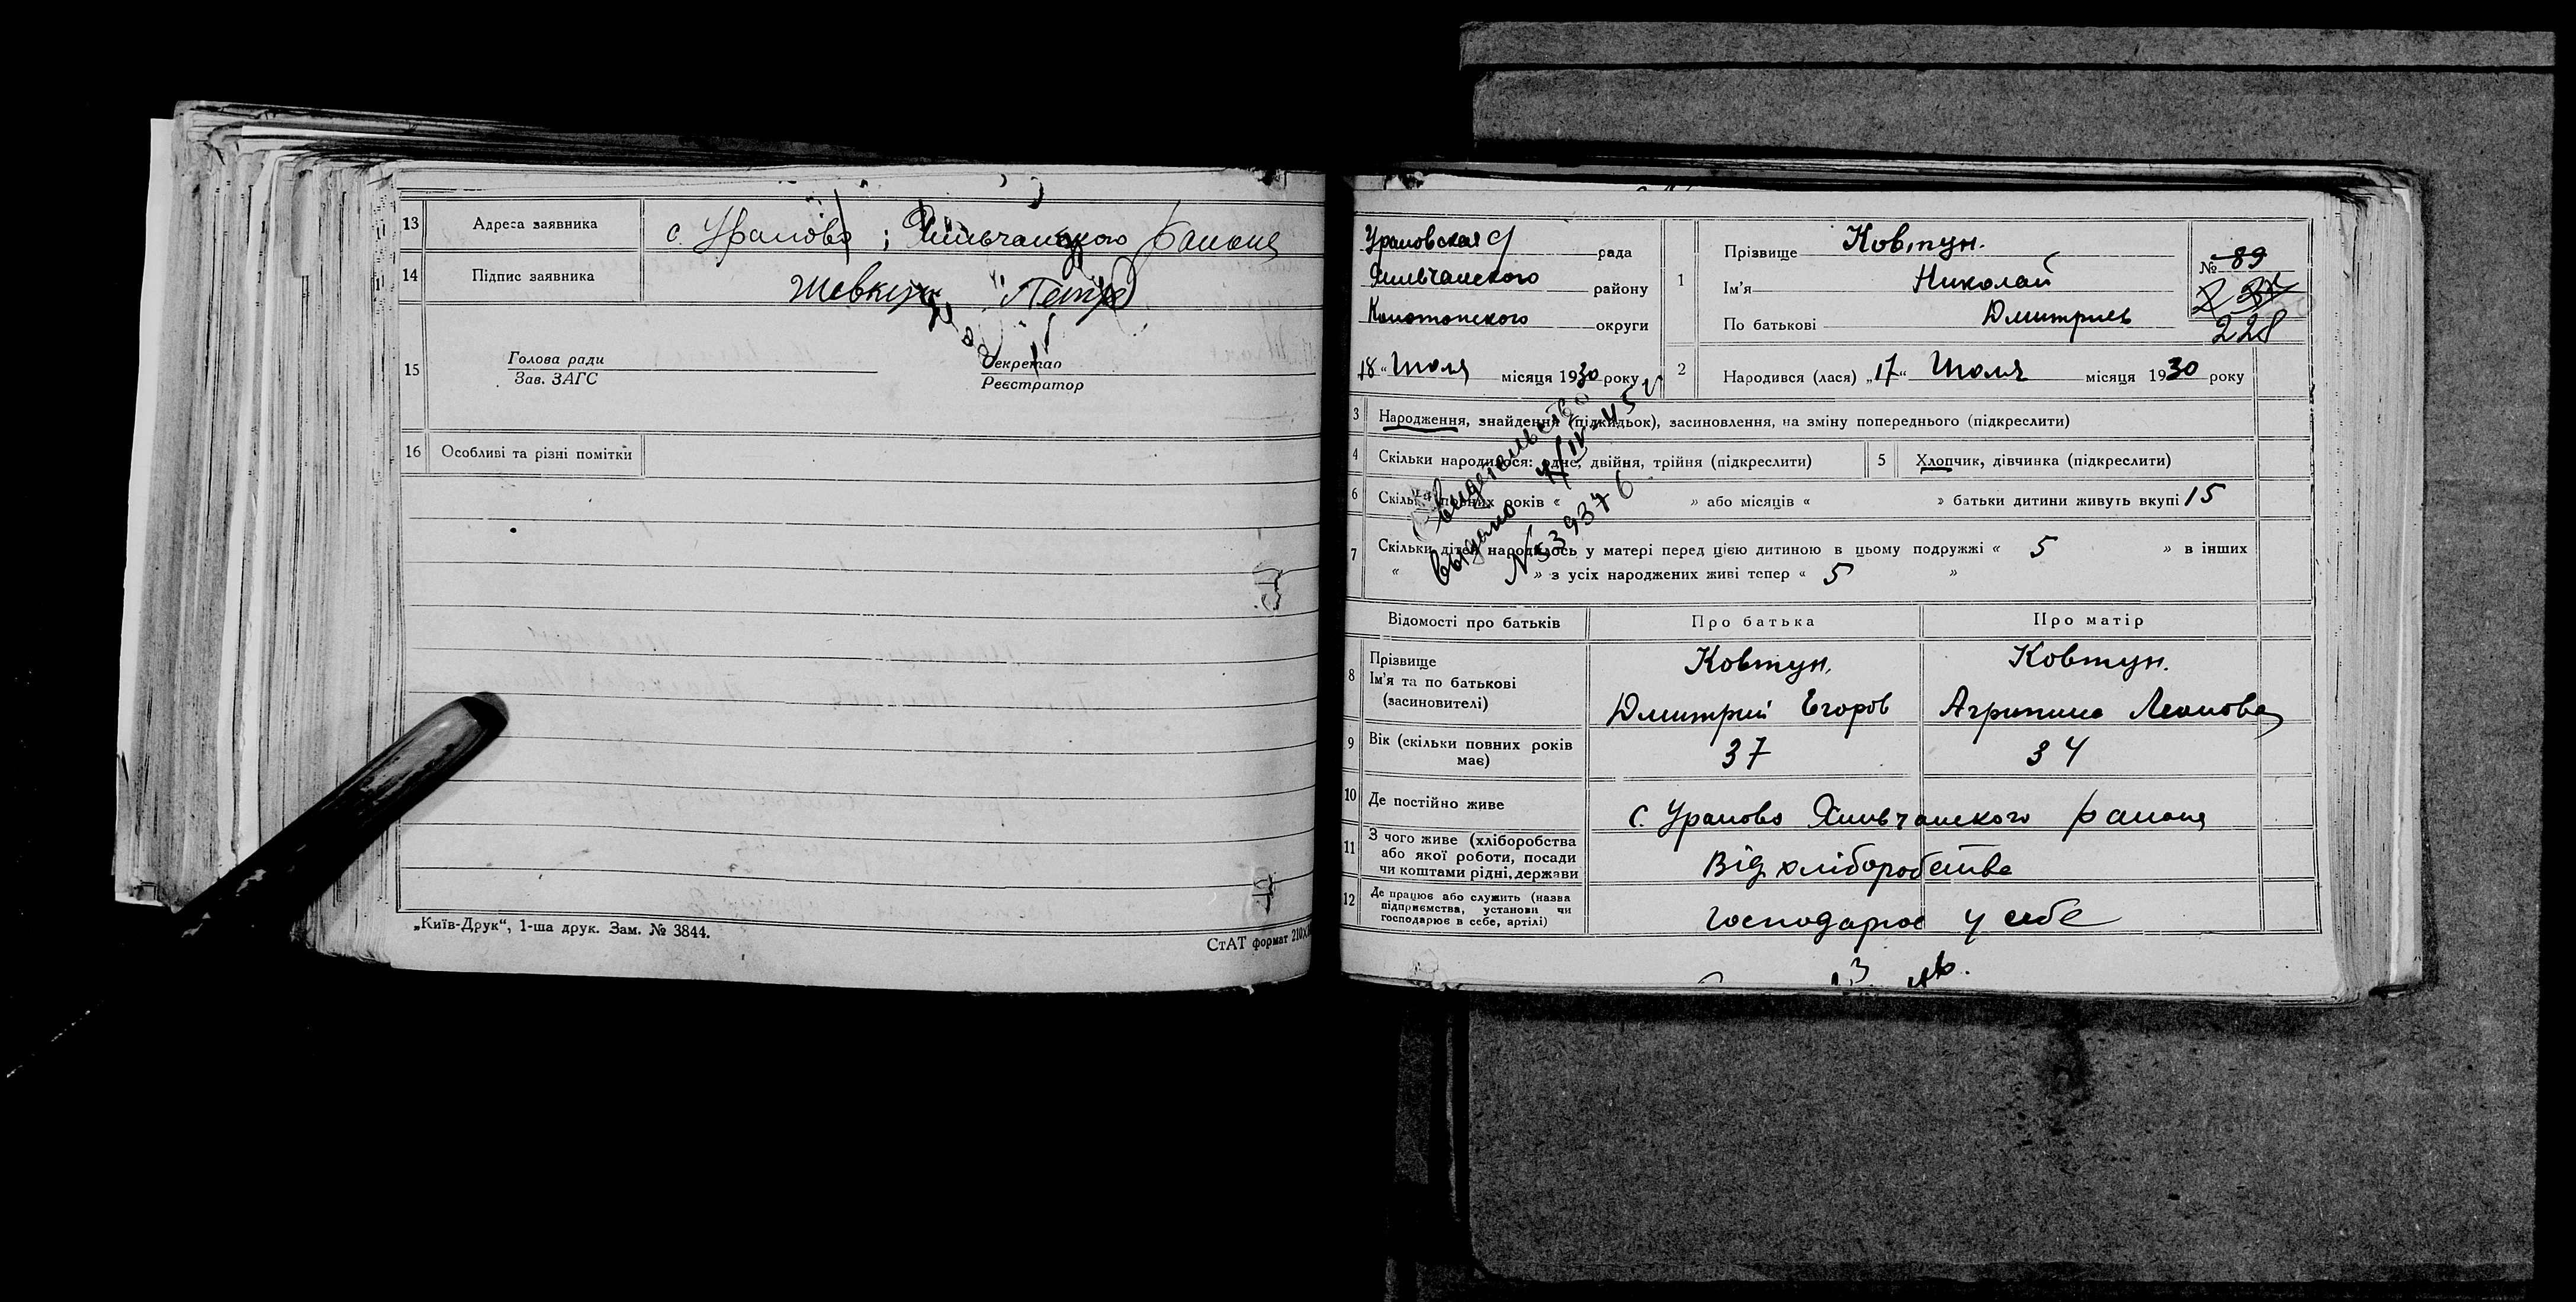 13 Адреса заявника с. Уралово; Ямпольчанського района
14 Підпис заявника Шевкун Петр
15 Голова ради
Зав. ЗАГС
Секретар
Реєстратор
16 Особливі та різні помітки
„Київ-Друк“, 1-ша друк. Зам. № 3844.
СтАТ формат 210Х
Ураловская рада
району
округи
18 “ Июля місяця 1930 року
1 Прізвище Ковтун.
Ім'я Николай
По батькові Дмитриев
№ 89
228
2 Народився (лася) „17“ Июля місяця 1930 року
3 Народження, знайдення (підкидьок), засиновлення, на зміну попереднього (підкреслити)
4 Скільки народилося: одне, двійня, трійня (підкреслити)
5 Хлопчик, дівчинка (підкреслити)
6 Скільки повних років « » або місяців « » батьки дитини живуть вкупі 15
7 Скільки дітей народилось у матері перед цією дитиною в цьому подружжі « 5 » в інших
« » з усіх народжених живі тепер « 5 »
Свидетельство
выдано /IV-45
№ 539376
Відомості про батьків Про батька Про матір
8 Прізвище
Ім'я та по батькові
(засиновителі)
Ковтун.
Дмитрий Егоров
Ковтун.
Агрипина Леонова
9 Вік (скільки повних років
має)
37 34
10 Де постійно живе с. Уралово района
11 З чого живе (хліборобства
або якої роботи, посади
чи коштами рідні, держави
Від хліборобства
12 Де працює або служить (назва
підприємства, установи чи
господарює в себе, артілі)
Господарює у себе